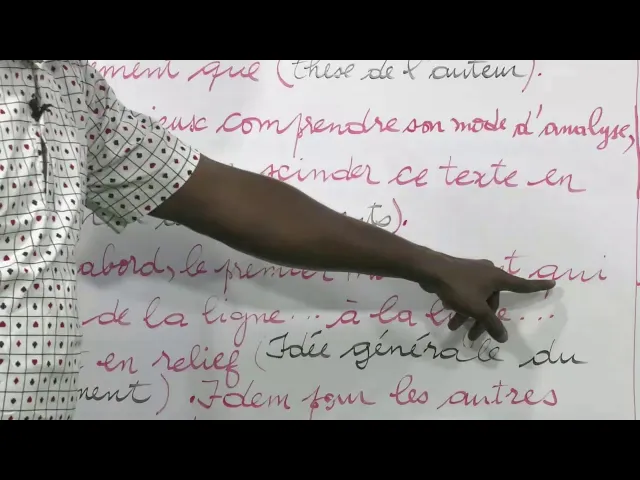 ement que (thèse de l'auteur).
ieux comprendre son mode d'analyse,
scinder ce texte en
ts).
abord, le premier qui
de la ligne... à la ...
en relief (Idée générale du
ment). Idem pour les autres